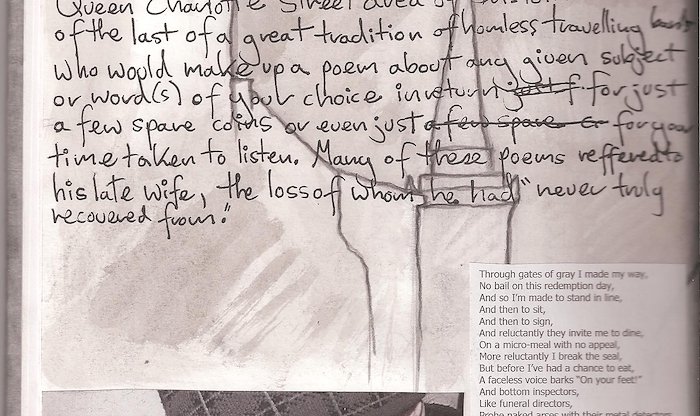 Queen Charlotte Street area of
of the last of a great tradition of homless travelling bards
who would make up a poem about any given subject
or word(s) of your choice in return just f for just
a few spare coins or even just a few spare co for your
time taken to listen. Many of these poems reffered to
his late wife, the loss of whom he had "never truly
recovered from."
Through gates of gray I made my way,
No bail on this redemption day,
And so I'm made to stand in line,
And then to sit,
And then to sign,
And reluctantly they invite me to dine,
On a micro-meal with no appeal,
More reluctantly I break the seal,
But before I've had a chance to eat,
A faceless voice barks "On your feet!"
And bottom inspectors,
Like funeral directors,
Probe naked arses with their metal detectors